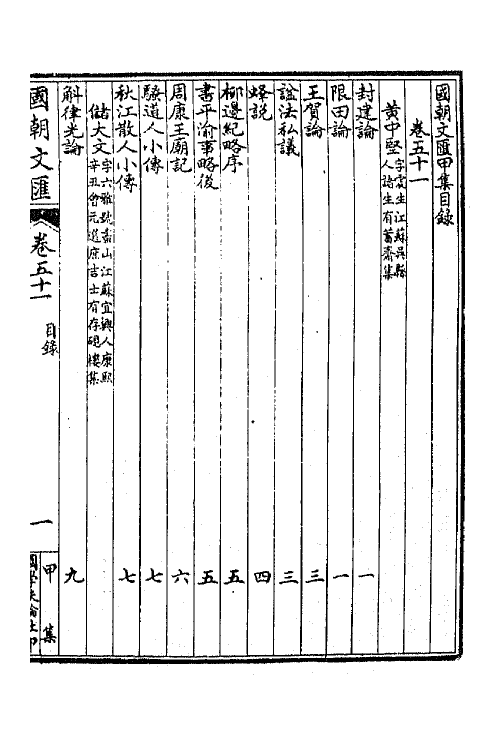 國朝文匯甲集目錄
卷五十一
黃中堅 字震生江蘇吳縣人諸生有蓄齋集
封建論 一
限田論 一
王賀論 三
諡法私議 三
蜂說 四
柳邊紀略序 五
書平渝事略後 五
周康王廟記 六
騕道人小傳 七
秋江散人小傳 七
儲大文 字六雅號畫山江蘇宜興人康熙辛丑會元選庶吉士有存硯樓集
斛律光論 九
國朝文匯 卷五十一 目錄 一 甲集 國學扶輪社印